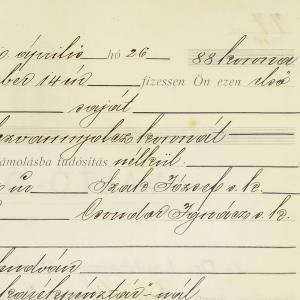 április hó 26 88 korona
ber 14 én fizessen Ön ezen első
saját
nyolcz koronát
ámolásba tudósítás nélkül.
úr Szak József s. k.
Csondor Ignácz s. k.
lendván
takarékpénztár"-nál.